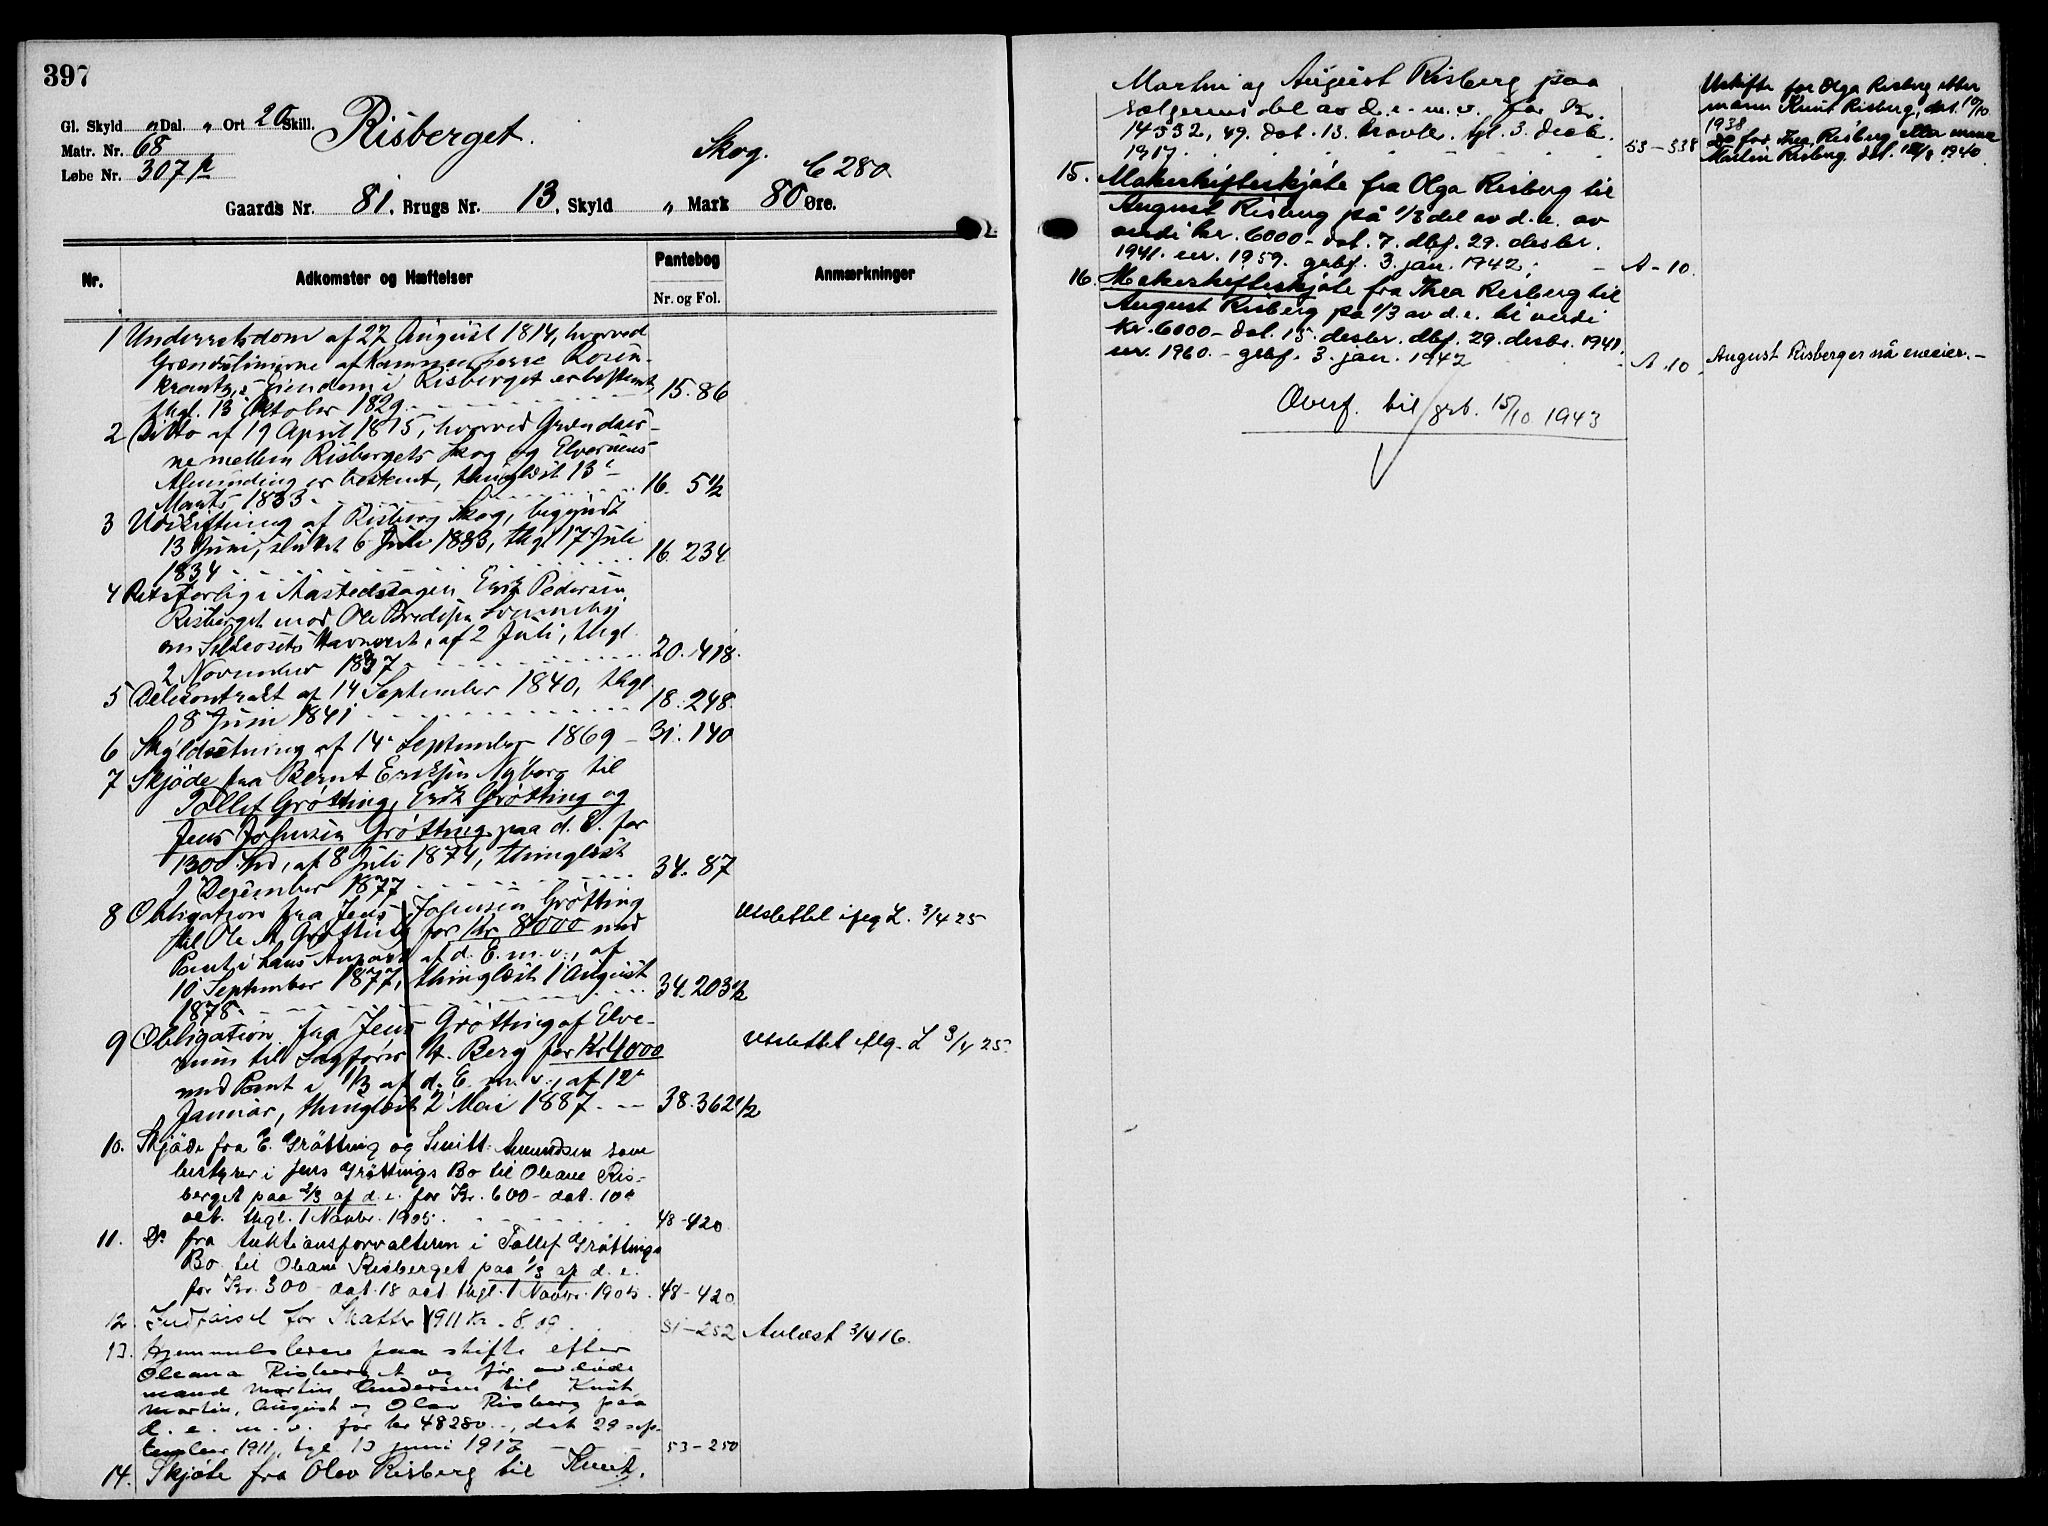 397
Gl. Skyld „ Dal. „ Ort 20 Skill.
Risberget.
Matr. Nr. 68
Skog.
Løbe Nr. 307
6280
Gaards Nr. 81, Brugs Nr. 13, Skyld „ Mark 80 Øre.
Nr.
Adkomster og Hæftelser
Pantebog
Nr. og Fol.
Anmærkninger
1 Underretsdom af 22 August 1814, hvorved
Grændselinierne af Kammerherre Rosen-
krantz's Eiendom i Risberget er bestemt,
thgl. 13 Oktober 1829. 15. 86
2 Ditto af 19 April 1815, hvorved Grændser-
ne mellem Risbergets Skog og Elverums
Alminding er bestemt, thinglæst 13
Marts 1833. 16. 5 1/2
3 Udskiftning af Risberg Skog, begyndt
13 Juni, sluttet 6 Juli 1833, thgl 17 Juli
1834 16. 234
4 Retsforlig i Aastedssagen Erik Pedersen
Risberget mod Ole
om Havneret, af 2 Juli, thgl.
2 November 1837 20. 418.
5 Delecontrakt af 14 September 1840, thgl
8 Juni 1841 18. 248.
6 Skyldsætning af 14 September 1869 - 31. 140
7 Skjöde fra Bernt Eriksen Nyberg til
Tollef Grøtting, Erik Grøtting og
Jens Johnsen Grøtting paa d. E. for
1300 Spd, af 8 Juli 1874, thinglæst
1 December 1877 34. 87
8 Obligation fra Jens Johnsen Grøtting
til Ole M. Grøtting for Kr 8000 med
Pant i hans Anpart af d. E. m. v., af
10 September 1877, thinglæst 1 August
1878. 34. 203 1/2
Utslettet ifølg L. 3/4 25
9 Obligation fra Jens Grøtting af Elve-
rum til Sagfører H. Berg for Kr 4000
med Pant i 1/3 af d. E. m. v., af 12
Januar, thinglæst 2 Mai 1887. — 38. 362 1/2
Utslettet iflg. L 3/4 25.
10. Skjöde fra E. Grøtting og Smitt Amundsen som
bestyrer i Jens Grøttings Bo til Oleane Ris-
berget paa 2/3 af d. e. for Kr. 600 - dat. 10
oct. thgl. 1 Novbr. 1905. 48-420
11. Do fra Auktionsforvalteren i Tollef Grøttings
Bo til Oleane Risberget paa 1/3 af d. e.
for Kr. 300 - dat. 18 oct thgl. 1 Novbr. 1905. 48-420
12. Indførsel for Skatter 1911 Kr. 8.09 51-252 Avlæst 3/4 16.
13. Hjemmelsbrev paa skifte efter
Oleana Risberget og før avdøde
mand Martin Andersen til Knut,
Martin, August og Olav Risberg paa
d. e. m. v. for kr 48280.-, dat 29 sep-
tember 1911, tgl. 13 juni 1917 53-250
14. Skjøte fra Olav Risberg til Knut,
Martin og August Risberg paa
sælgerens del av d. e. m. v. for Kr.
14532,49. Dat. 13. Novbr. tgl. 3. Decb.
1917. 53-338
Uskifte for Olga Risberg etter
mann Knut Risberg, dat. 10/10
1938
Do for Thea Risberg etter mann
Martin Risberg dat. 1940.
15. Makeskifteskjøte fra Olga Risberg til
August Risberg på 1/3 del av d. e. av
verdi kr. 6000 - dat. 7. dbf. 29. desbr.
1941. nr. 1959. grbf. 3. jan. 1942. - A-10.
16. Makeskifteskjøte fra Thea Risberg til
August Risberg på 1/3 av d. e. til verdi
Kr. 6000 - dat. 15. desbr. dbf. 29. desbr. 1941.
nr. 1960. - grbf. 3. jan. 1942 A-10
August Risberg er nå eneeier. -
Overf. til grb. 15/10 1943